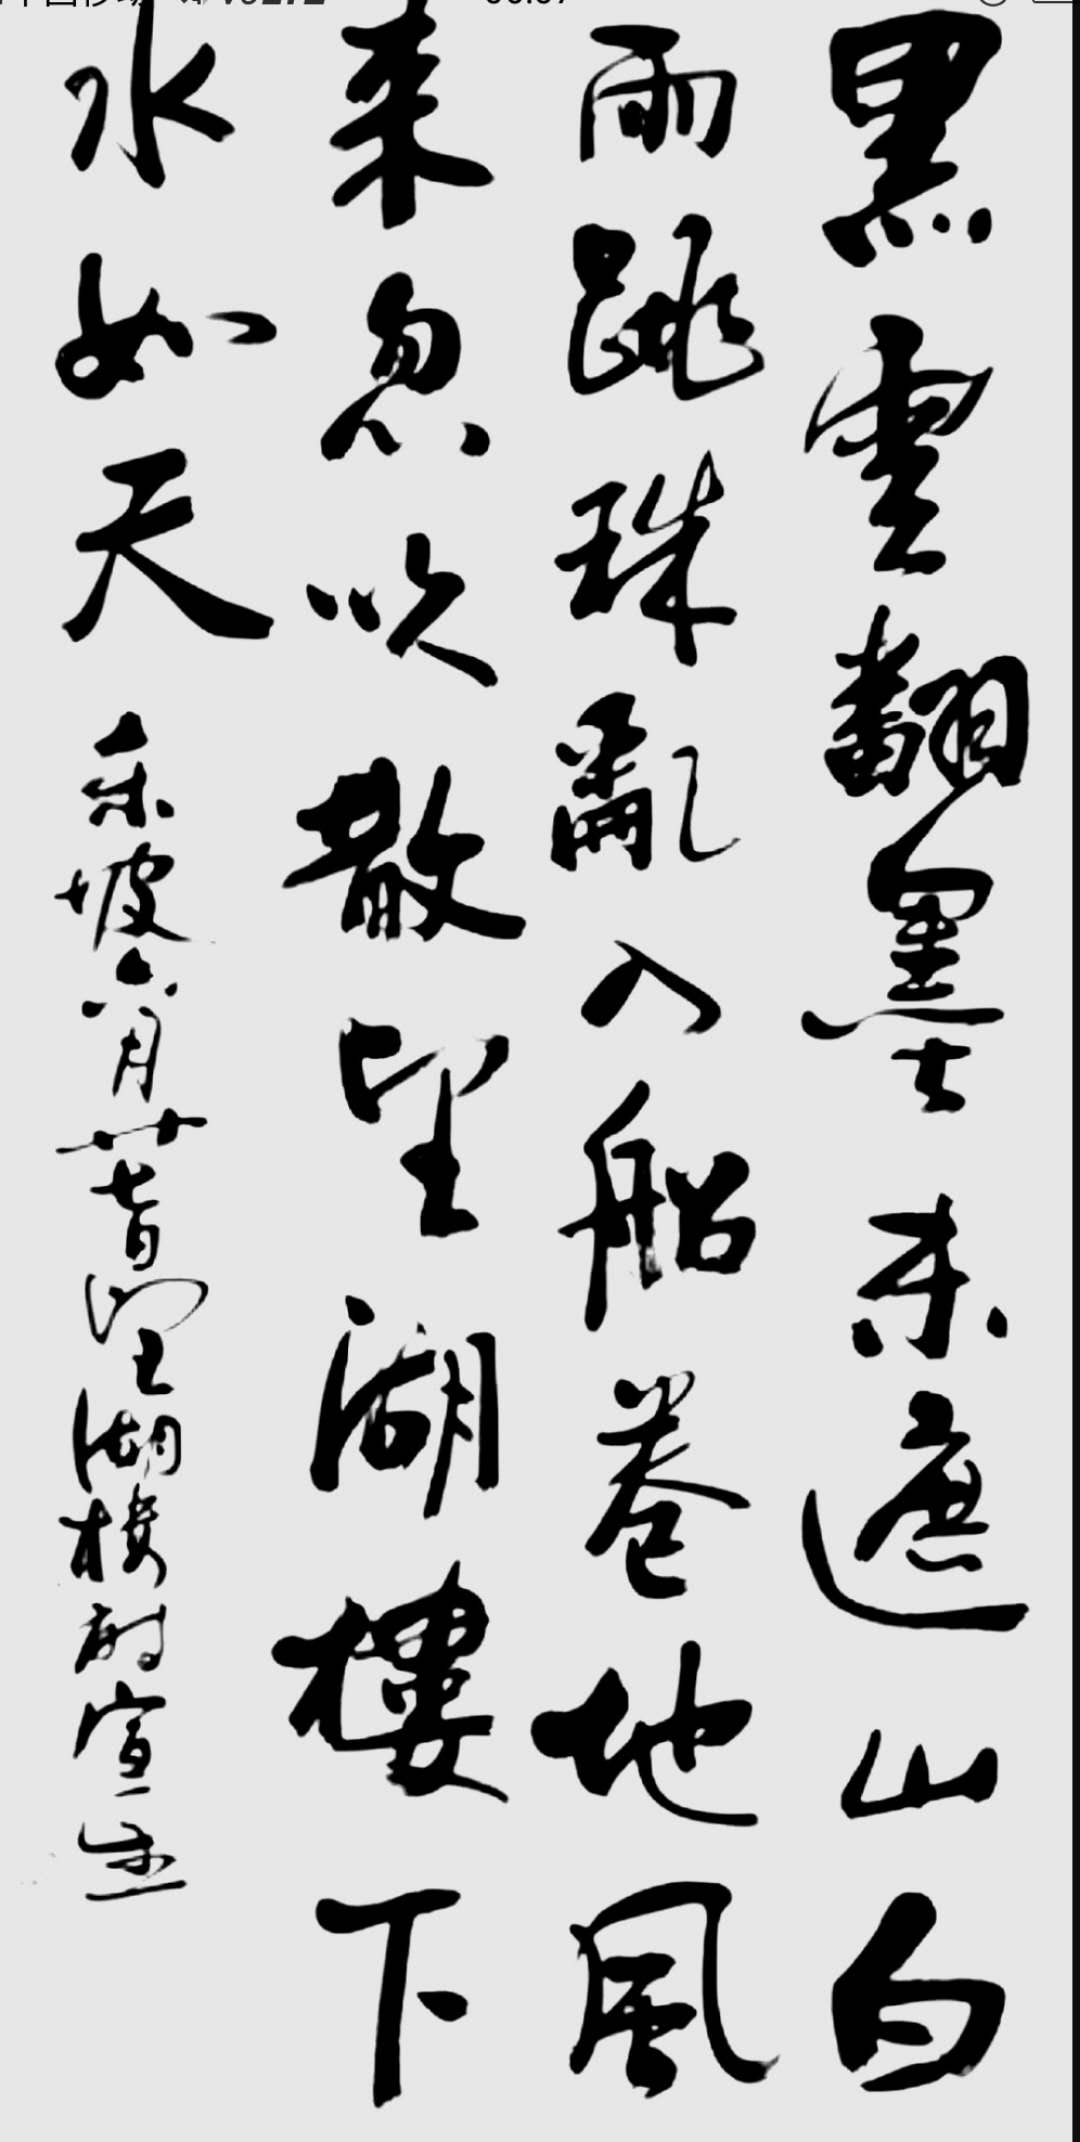 黑雲翻墨未遮山白
雨跳珠亂入船卷地風
来忽吹散望湖樓下
水如天
東坡六月廿七日望湖楼醉宣生